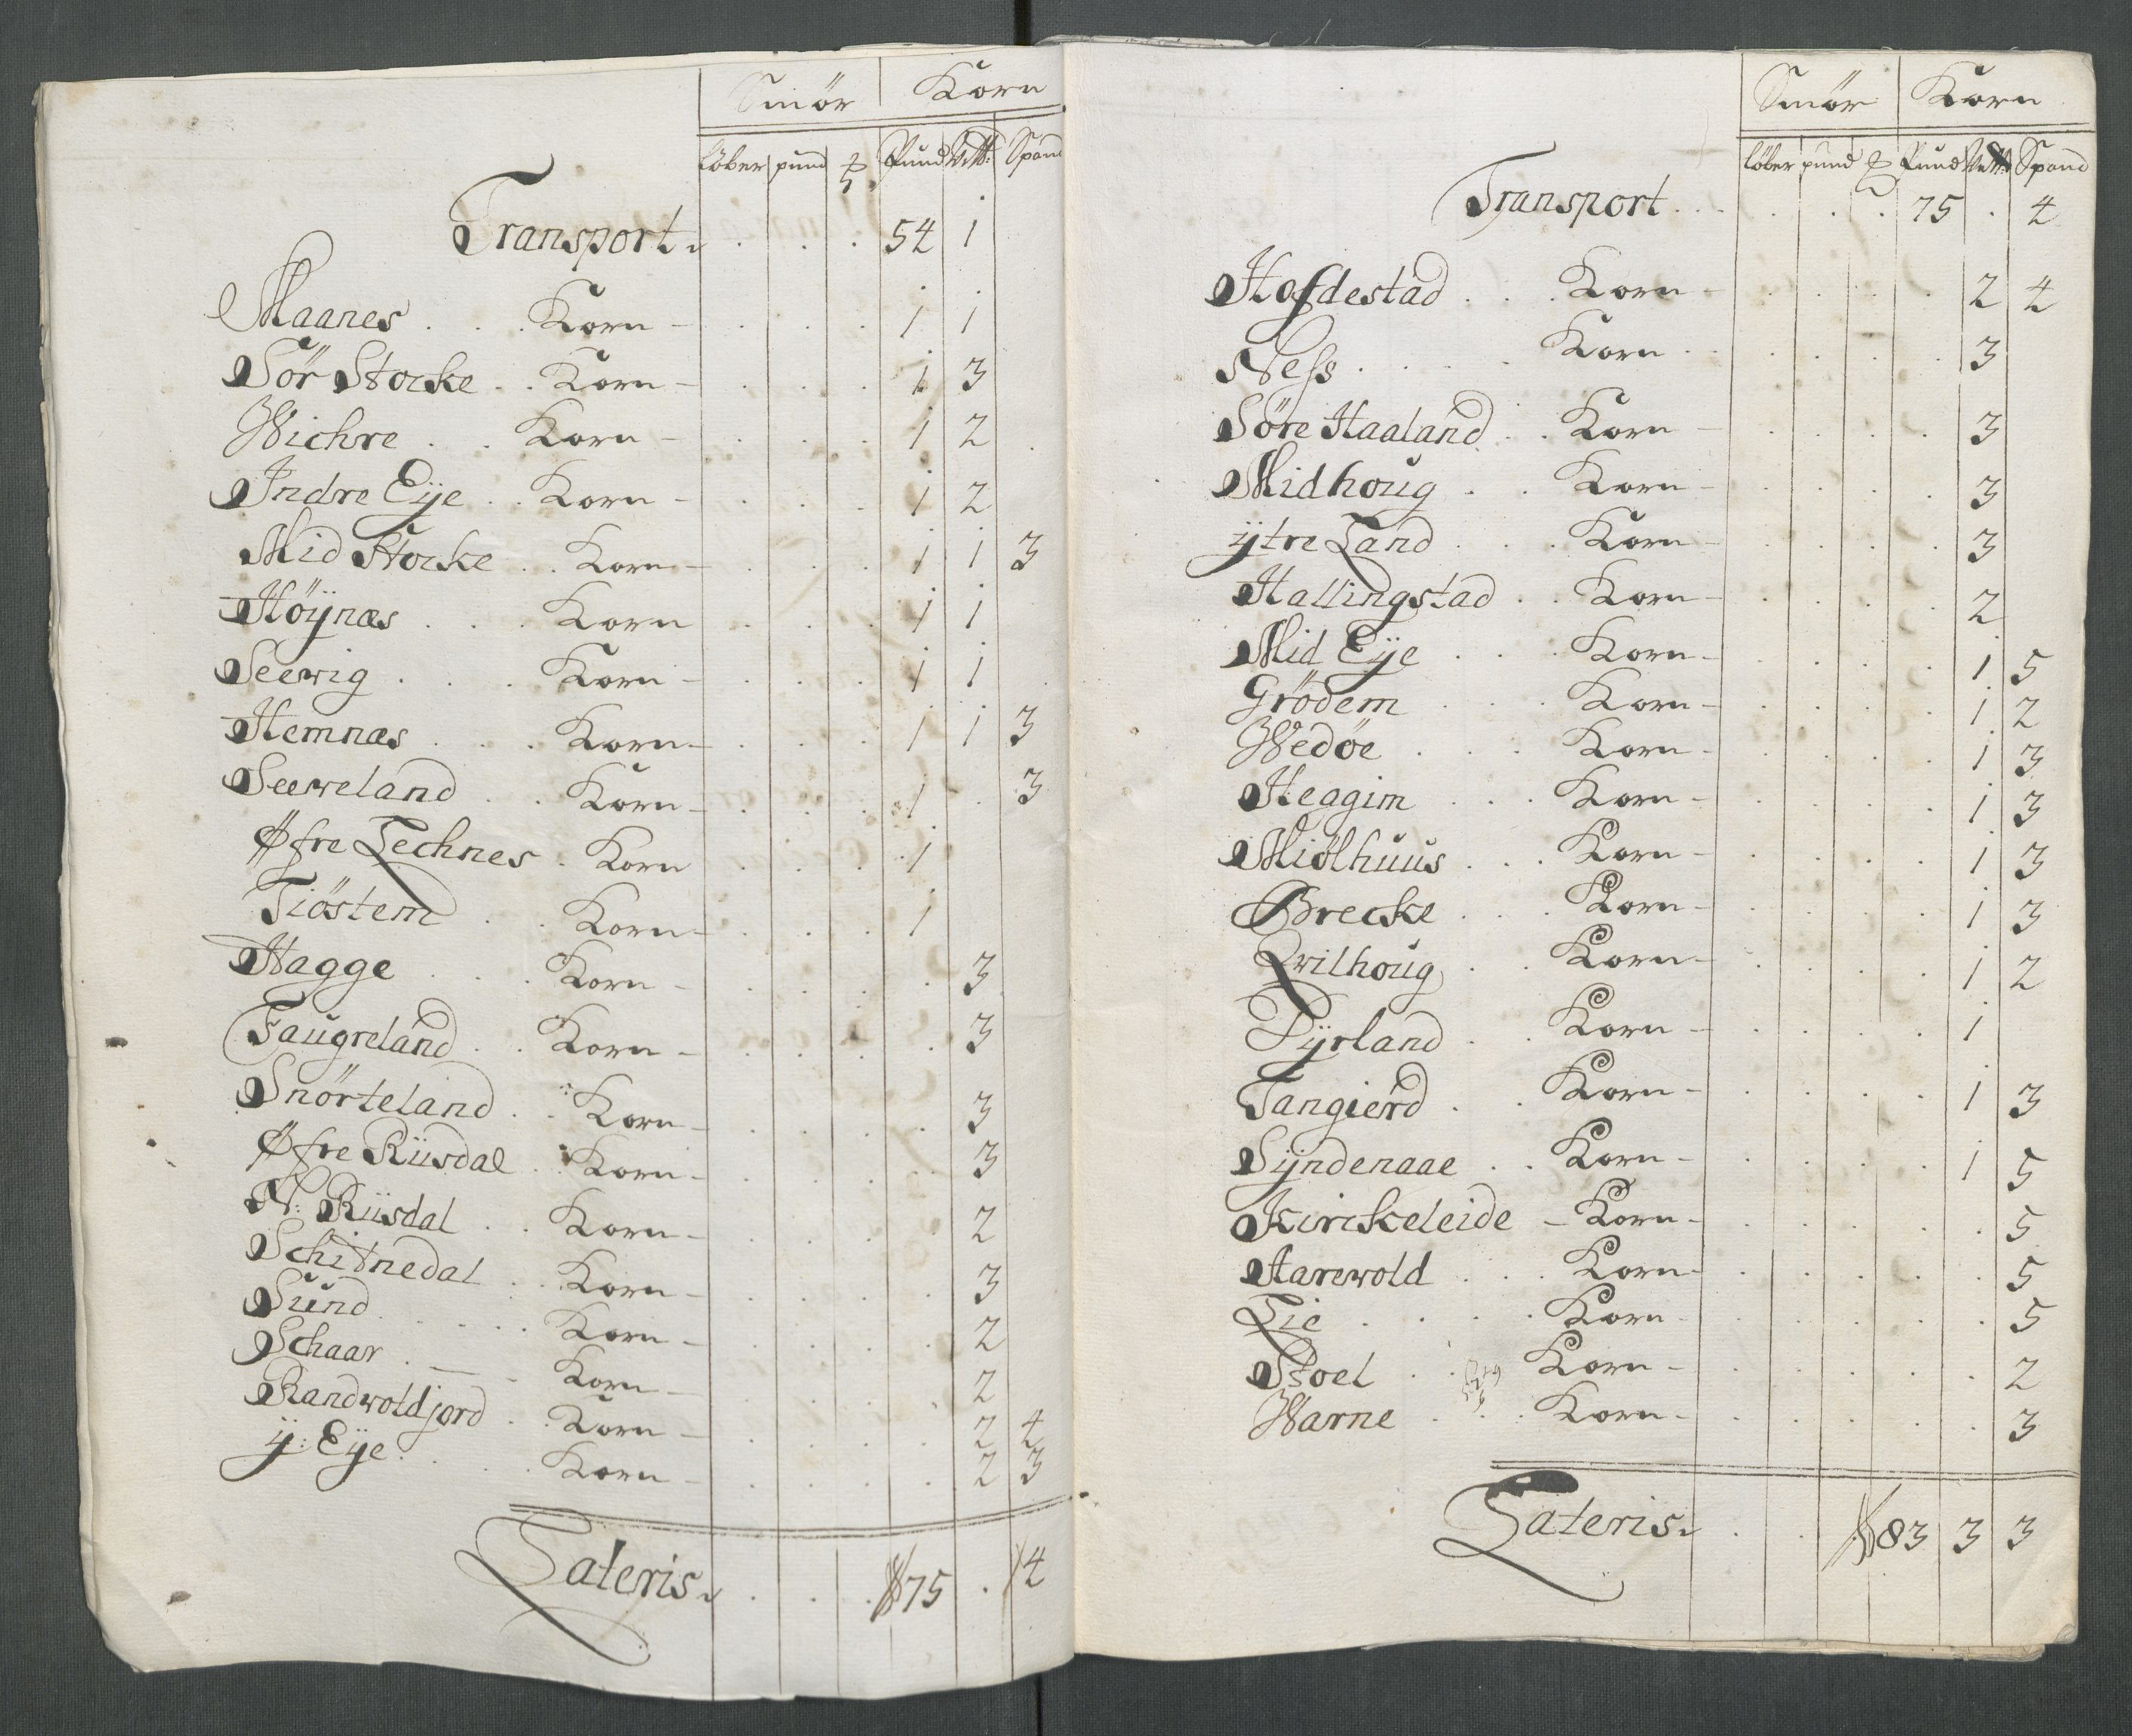 Smör Korn
löber pund ℔ Pund Wett: Spand
Transport. . . . 54 1
Maanes . . . Korn - 1 1
Sör Stocke . . Korn - 1 3
Wichre . . Korn - 1 2
Indre Eÿe . . Korn - 1 2
Mid Stocke . . Korn - 1 1 3
Höÿnæs . . . Korn 1 1
Seewig . . . Korn - 1 1
Hemnæs . . . Korn - 1 1 3
Seeweland . . Korn - 1 . 3
Øfre Lechnes . Korn 1
Tiöstem . . Korn - 1
Hagge . . . Korn - 3
Faugreland . . Korn - 3
Snörteland . . Korn - 3
Øfre Riisdal . Korn - 3
N: Riisdal . . Korn - 2
Schitnedal . . Korn - 3
Sund . . . . Korn - 2
Schaar . — - Korn - 2
Randwoldjord . . Korn - 2 4
ÿ: Eÿe . . . Korn - 2 3
Lateris. . . . 75 . 4
Smör Korn
löber pund ℔ Pund Wett: Spand
Transport . . . . 75 . 4
Hofdestad . . . Korn - 2 4
Ness . . . . Korn . . 3
Söre Haaland . . Korn - 3
Midhoug . . Korn - 3
ÿtre Land . . . Korn - 3
Hallingstad . . Korn - 2
Mid Eÿe . . . Korn - 1 5
Grödem . . . Korn - 1 2
Wedøe . . . Korn - 1 3
Heagim . . . Korn - 1 3
Miölhuus . . . Korn - 1 3
Brecke . . . Korn - 1 3
Qvilhoug . . Korn - 1 2
Dÿrland . . Korn - 1
Tangierd . . Korn - 1 3
Sÿndenaae . . Korn - 1 5
Kirckeleide - Korn - 5
Harewold . . . Korn - 5
Lie . . . . Korn - 5
Stoel . . Korn - 2
Warne . . . Korn - 3
Lateris. . . 83 3 3